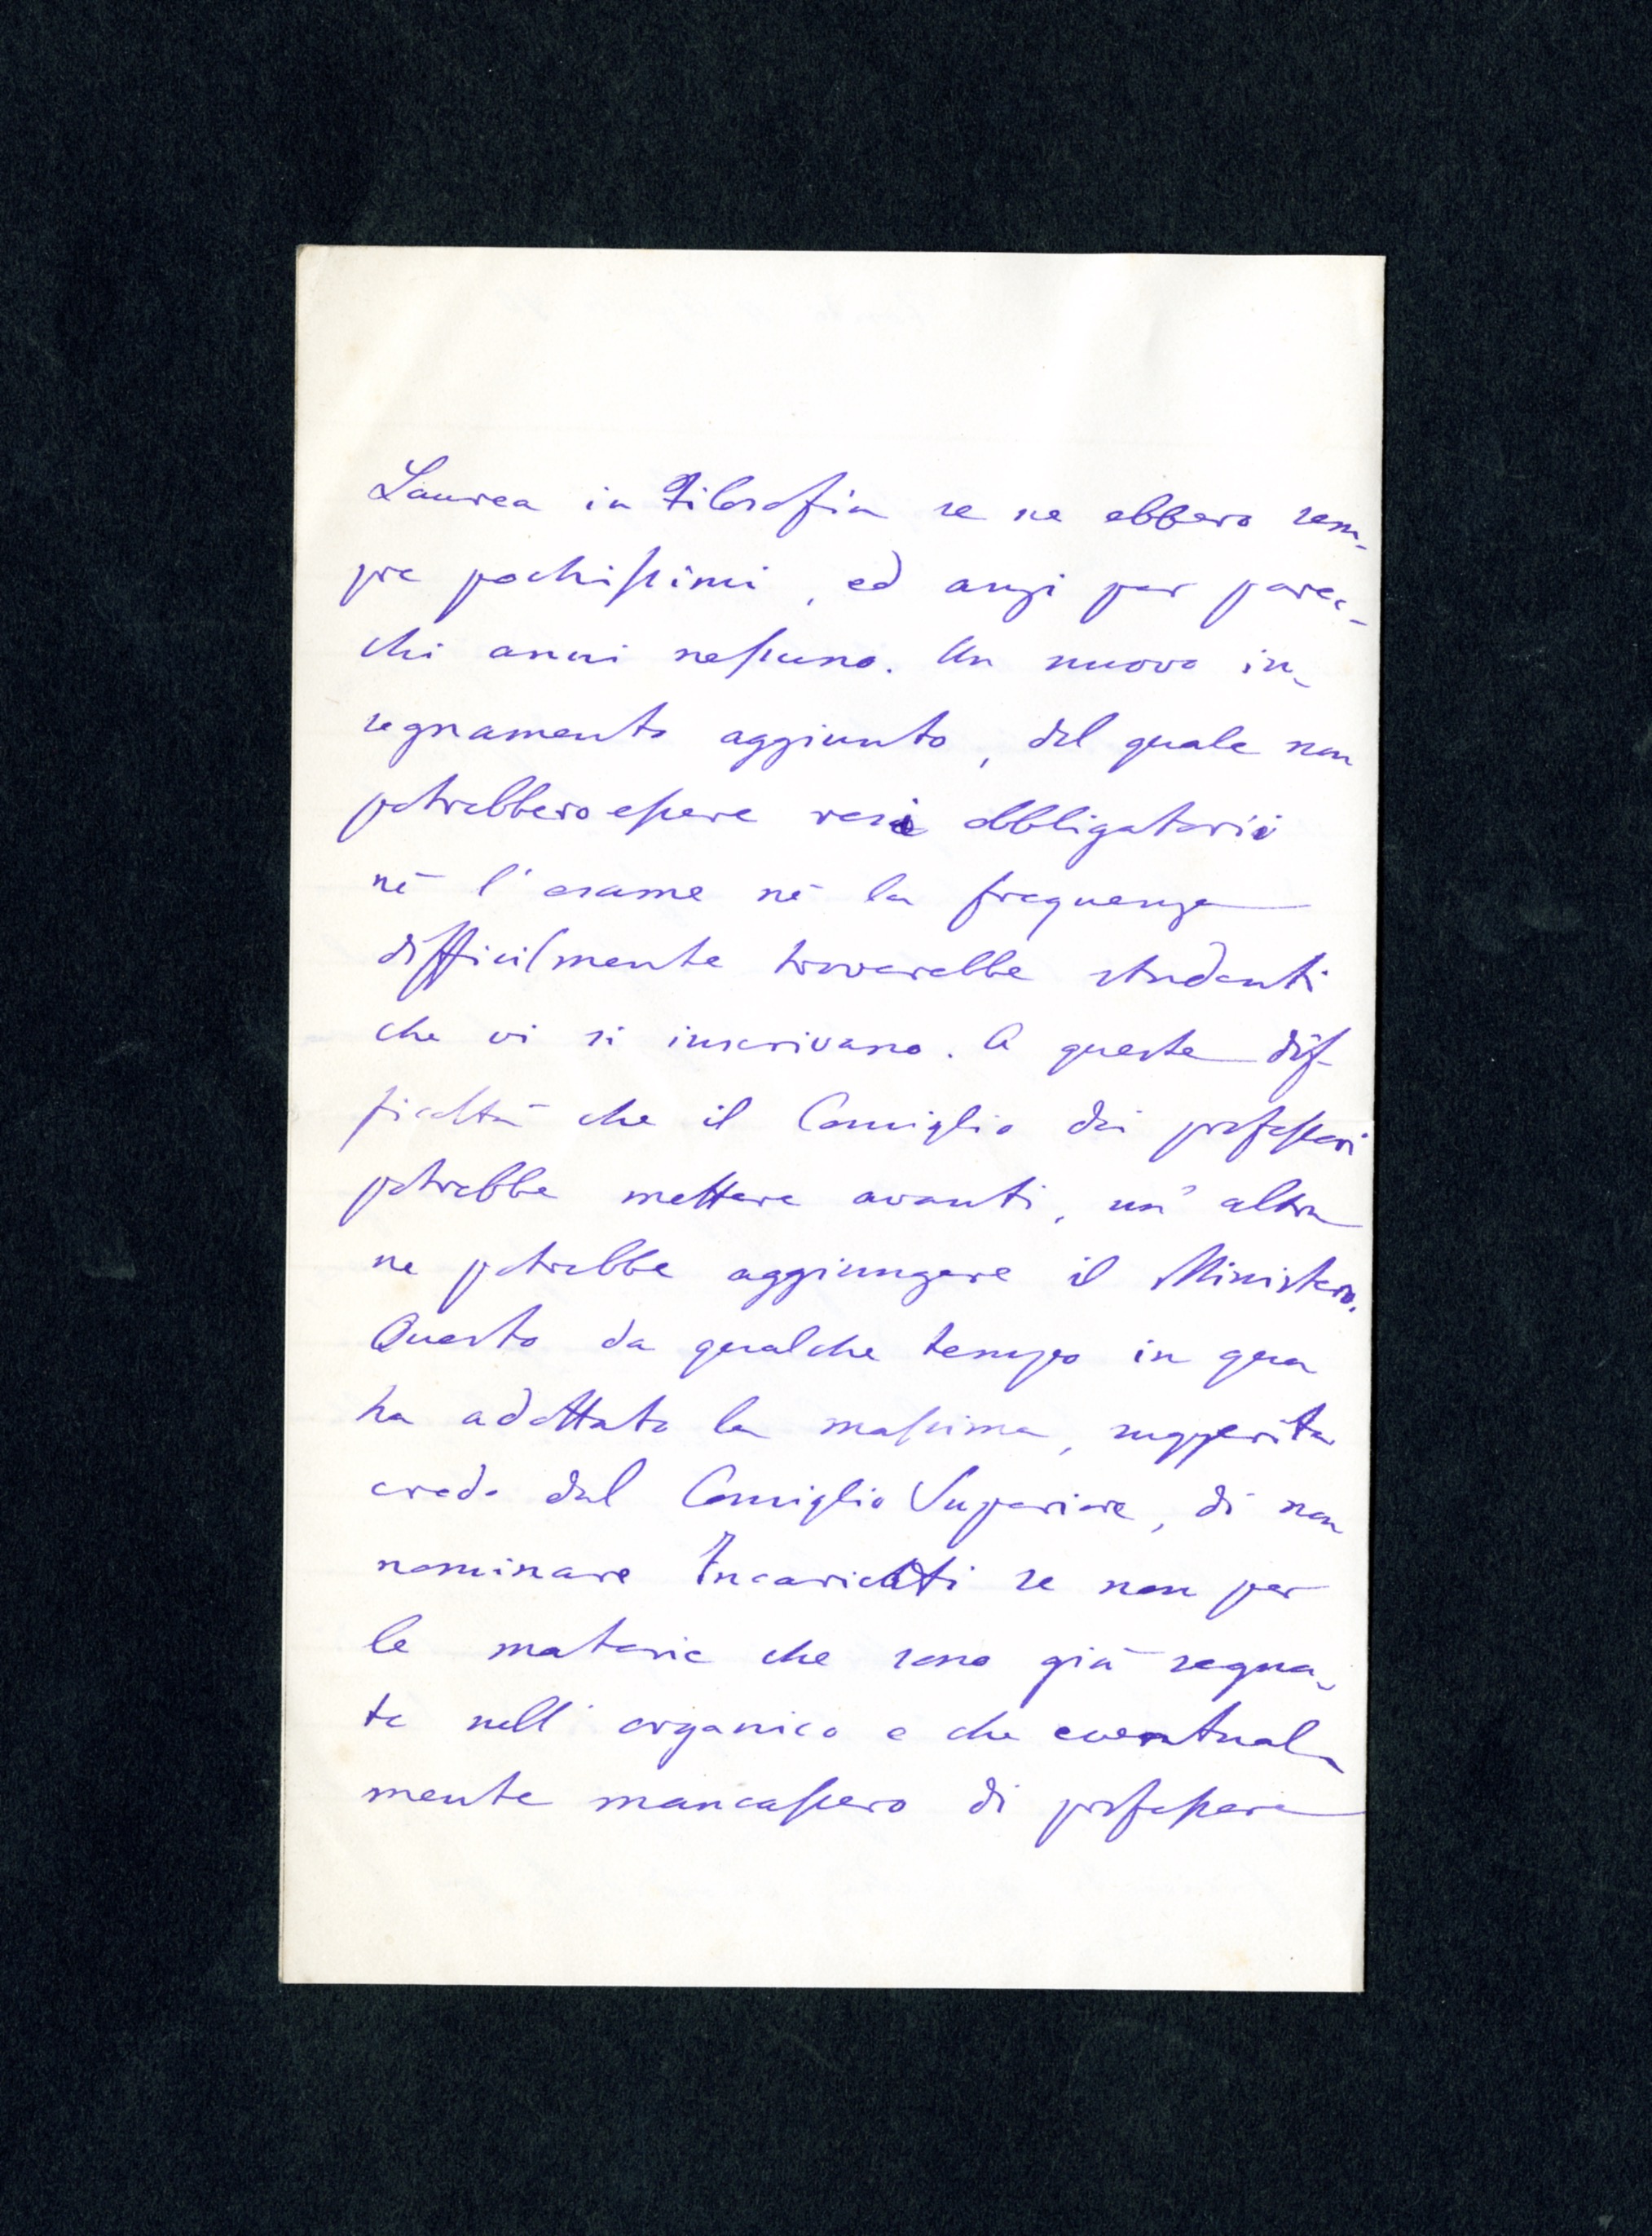 Laurea in Filosofia se ne ebbero sem-
pre pochissimi, ed anzi per parec-
chi anni nessuno. Un nuovo in-
segnamento aggiunto, del quale non
potrebbero essere resi obbligatorii
nè l'esame nè la frequenza
difficilmente troverebbe studenti
che vi si inscrivano. A queste dif-
ficoltà che il Consiglio dei professori
potrebbe mettere avanti, un'altra
ne potrebbe aggiungere il Ministero.
Questo da qualche tempo in qua
ha adottato la massima, suggerita
credo dal Consiglio Superiore, di non
nominare Incaricati se non per
le materie che sono già segna-
te nell'organico e che eventual-
mente mancassero di professore